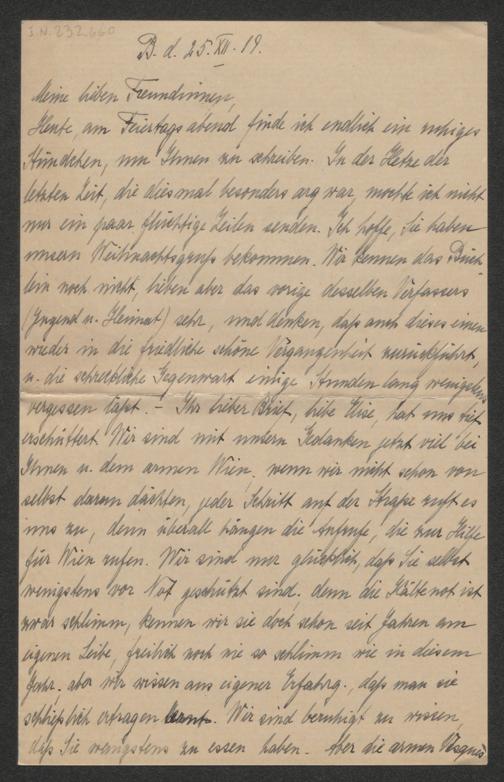 I.N. 232.660
B. d. 25. XII. 19.
Meine lieben Freundinnen,
Heute, am Feiertagsabend finde ich endlich ein ruhiges
Stündchen, um Ihnen zu schreiben. In der Hetze der
letzten Zeit, die diesmal besonders arg war, mochte ich nicht
nur ein paar flüchtige Zeilen senden. Ich hoffe, Sie haben
unsern Weihnachtsgruß bekommen. Wir kennen das Büch-
lein noch nicht, lieben aber das vorige desselben Verfassers
(Jugend u. Heimat) sehr, und denken, daß auch dieses einen
wieder in die friedliche schöne Vergangenheit zurückführt,
u. die schreckliche Gegenwart einige Stunden lang wenigstens
vergessen läßt. – Ihr lieber Brief, liebe Elise, hat uns tief
erschüttert. Wir sind mit unsern Gedanken jetzt viel bei
Ihnen u. dem armen Wien, wenn wir nicht schon von
selbst daran dächten, jeder Schritt auf der Straße ruft es
uns zu, denn überall hängen die Aufrufe, die zur Hilfe
für Wien rufen. Wir sind nur glücklich, daß Sie selbst
wenigstens vor Not geschützt sind, denn die Kältenot ist
zwar schlimm, kennen wir sie doch schon seit Jahren am
eigenen Leibe, freilich noch nie so schlimm wie in diesem
Jahr, aber wir wissen aus eigener Erfahrg., daß man sie
schließlich ertragen lernt. Wir sind beruhigt zu wissen,
daß Sie wenigstens zu essen haben. Aber die armen